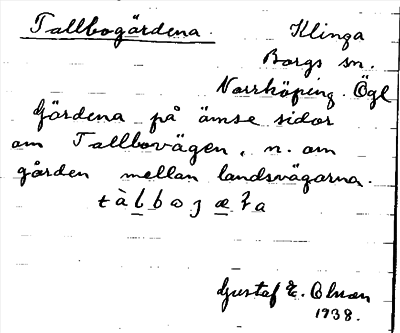 Tallbogärdena.
Klinga
Borgs sn.
Norrköping. Ögl
Gärdena på ömse sidor
om Tallbovägen, n. om
gården mellan landsvägarna.
Gustaf E. Olsson
1938.